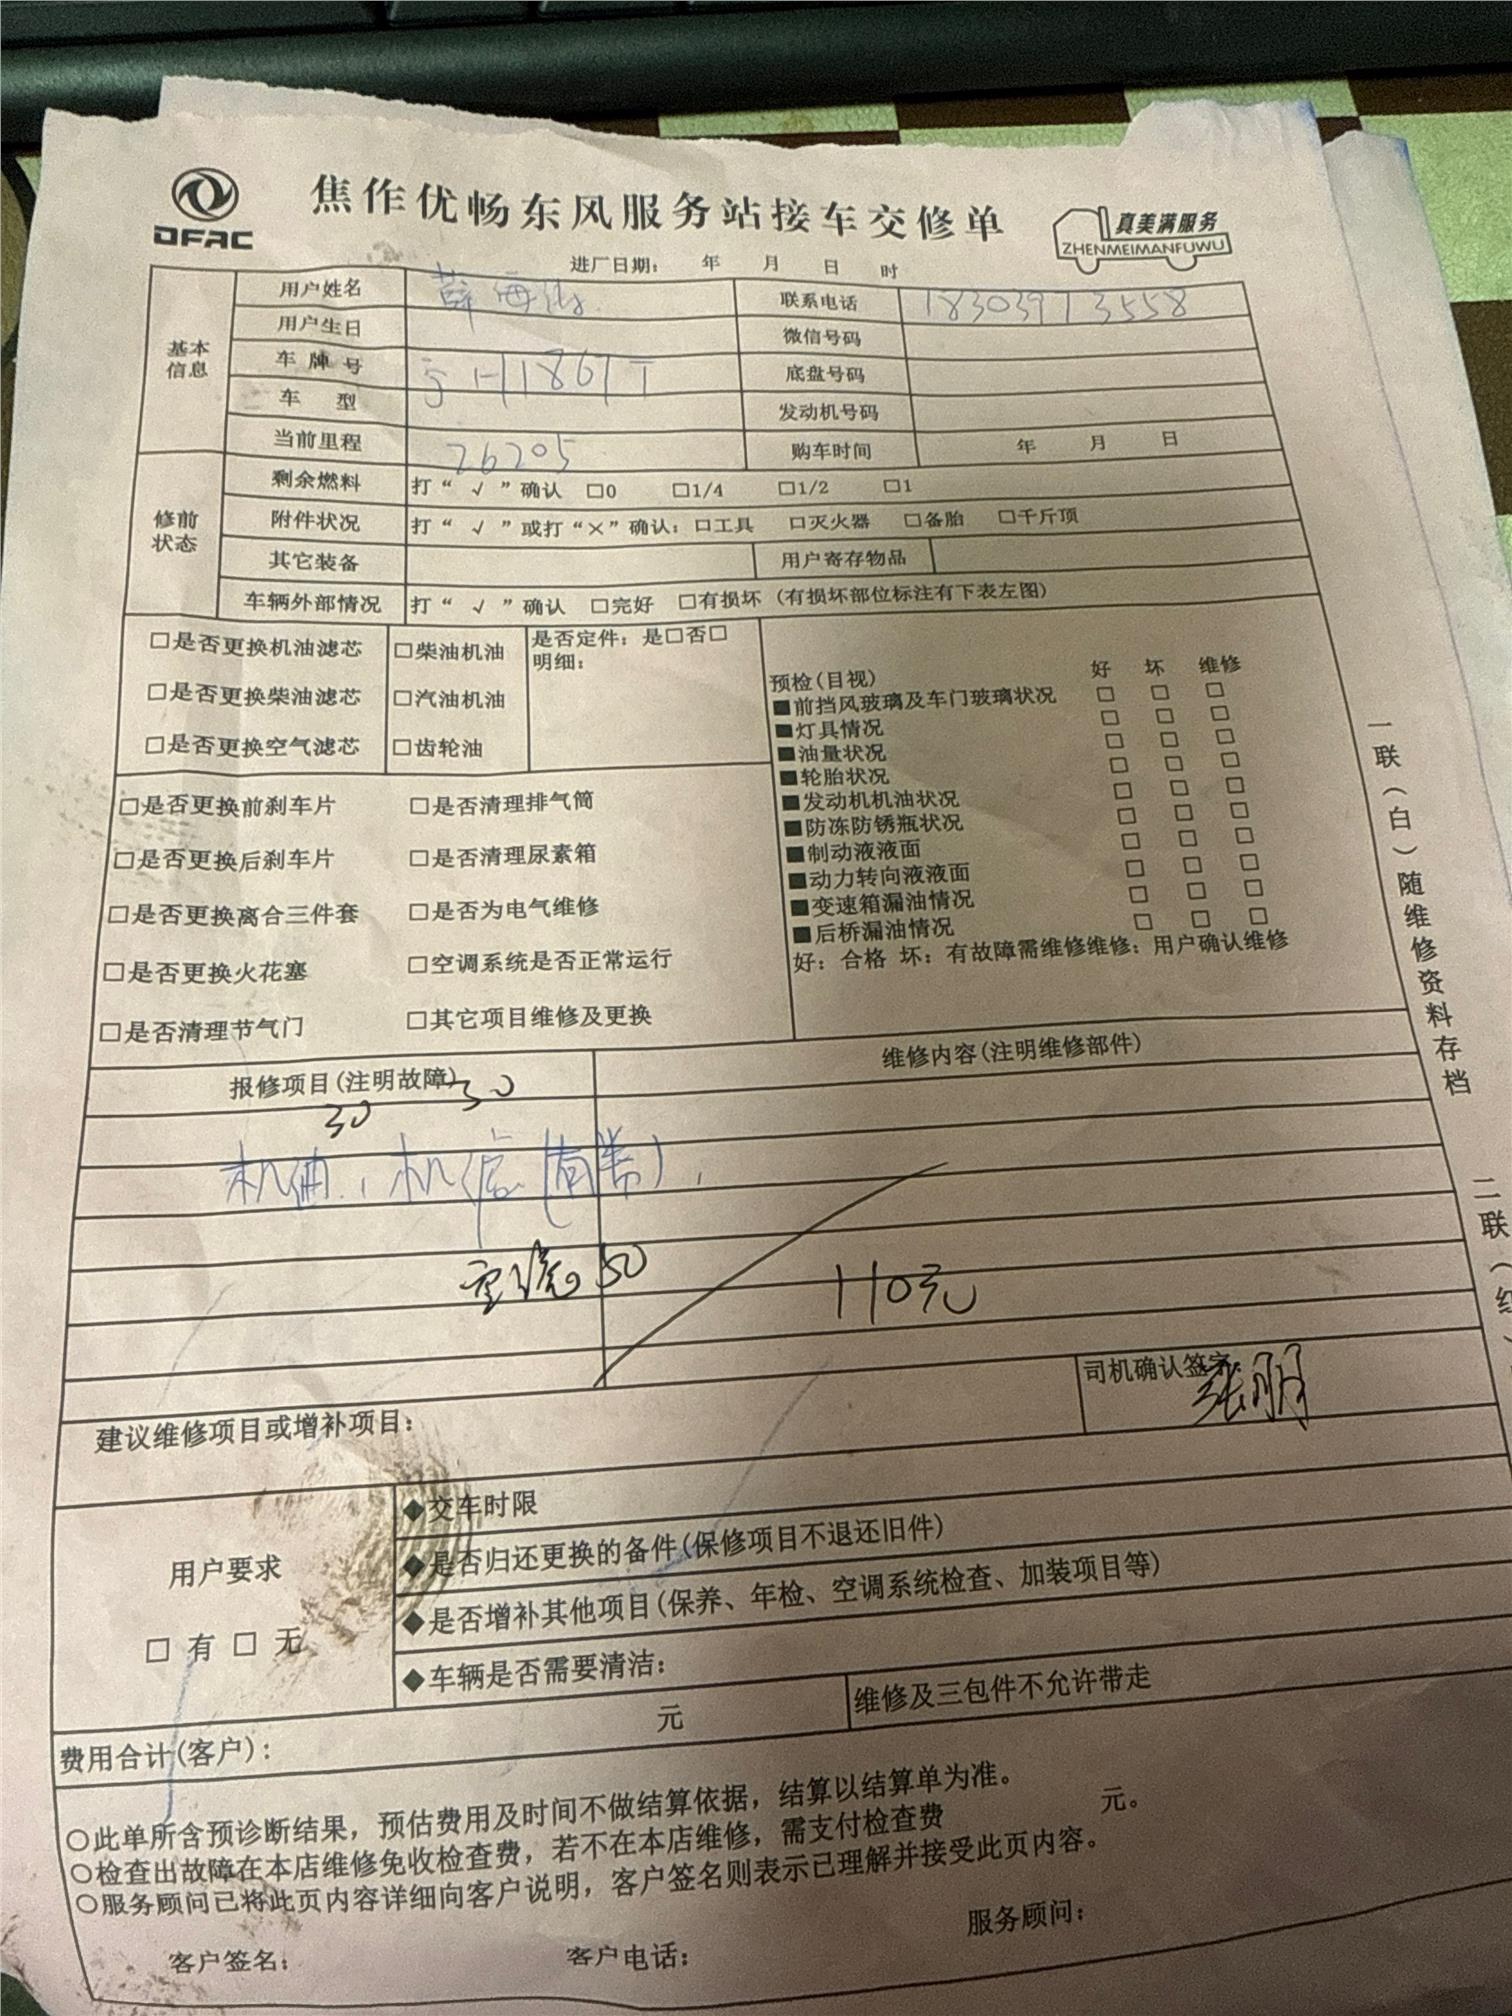 DFAC
焦作优畅东风服务站接车交修单
真美满服务
ZHENMEIMANFUWU
进厂日期: 年 月 日 时
基本信息
用户姓名 薛海 联系电话 18303913558
用户生日 微信号码
车牌号 H1861T 底盘号码
车 型 发动机号码
当前里程 26205 购车时间 年 月 日
修前状态
剩余燃料 打“√”确认 □0 □1/4 □1/2 □1
附件状况 打“√”或打“×”确认: □工具 □灭火器 □备胎 □千斤顶
其它装备 用户寄存物品
车辆外部情况 打“√”确认 □完好 □有损坏(有损坏部位标注有下表左图)
□是否更换机油滤芯 □柴油机油 是否定件: 是□否□
明细:
□是否更换柴油滤芯 □汽油机油
□是否更换空气滤芯 □齿轮油
预检(目视) 好 坏 维修
■前挡风玻璃及车门玻璃状况 □ □ □
■灯具情况 □ □ □
■油量状况 □ □ □
■轮胎状况 □ □ □
■发动机机油状况 □ □ □
■防冻防锈瓶状况 □ □ □
■制动液液面 □ □ □
■动力转向液液面 □ □ □
■变速箱漏油情况 □ □ □
■后桥漏油情况 □ □ □
好: 合格 坏: 有故障需维修维修: 用户确认维修
□是否更换前刹车片 □是否清理排气筒
□是否更换后刹车片 □是否清理尿素箱
□是否更换离合三件套 □是否为电气维修
□是否更换火花塞 □空调系统是否正常运行
□是否清理节气门 □其它项目维修及更换
一联(白)随维修资料存档
二联(红
报修项目(注明故障) 维修内容(注明维修部件)
30 30
机油、机滤(自带)、
空滤 50
110元
司机确认签字 张明
建议维修项目或增补项目:
用户要求
□ 有 □ 无
◆交车时限
◆是否归还更换的备件(保修项目不退还旧件)
◆是否增补其他项目(保养、年检、空调系统检查、加装项目等)
◆车辆是否需要清洁:
费用合计(客户): 元 维修及三包件不允许带走
○此单所含预诊断结果,预估费用及时间不做结算依据,结算以结算单为准。
○检查出故障在本店维修免收检查费,若不在本店维修,需支付检查费 元。
○服务顾问已将此页内容详细向客户说明,客户签名则表示已理解并接受此页内容。
客户签名: 客户电话: 服务顾问: